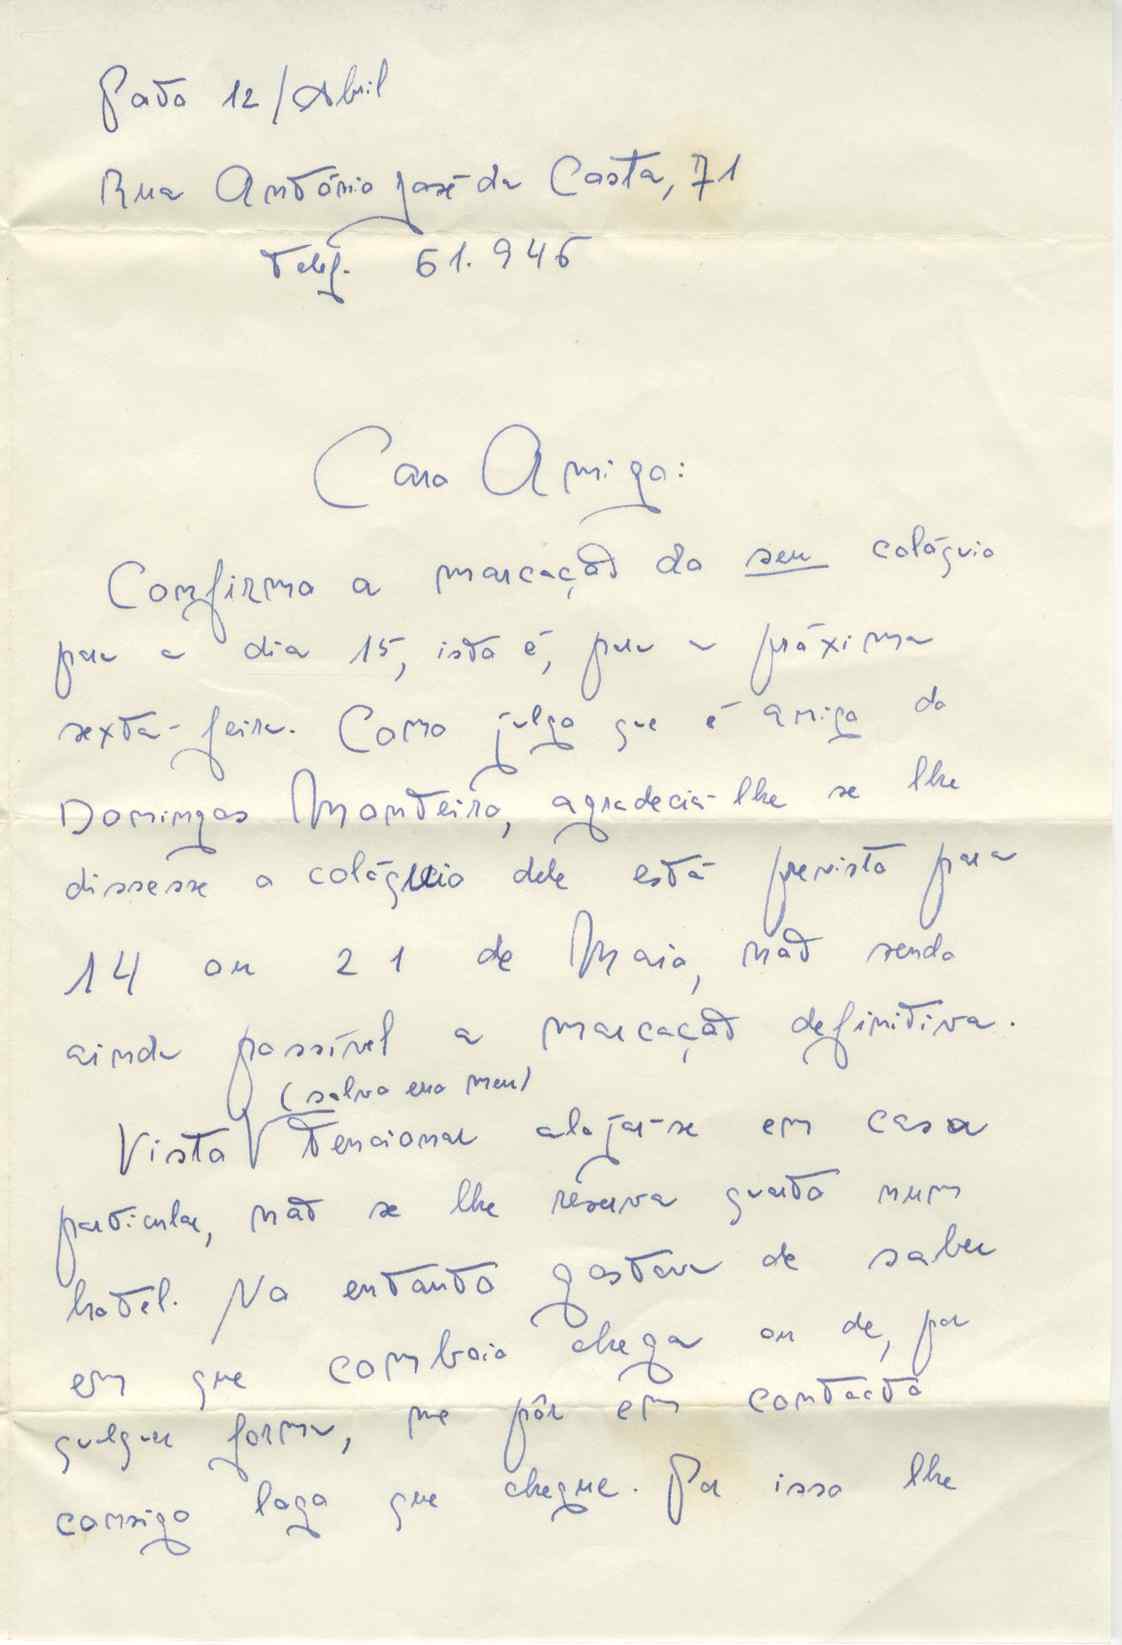 Porto 12/Abril
Rua António José da Costa, 71
Telef. 61.946
Caro Amigo:
Confirmo a marcação do seu colóquio
para o dia 15, isto é, para a próxima
sexta-feira. Como julgo que é amigo do
Domingos Monteiro, agradecia-lhe se lhe
dissesse o colóquio dele está previsto para
14 ou 21 de Maio, não sendo
ainda possível a marcação definitiva.
(salvo erro meu)
Visto tencionar alojar-se em casa
particular, não se lhe reserva quarto num
hotel. No entanto gostava de saber
em que comboio chega ou de, por
qualquer forma, me pôr em contacto
consigo logo que chegue. Por isso lhe